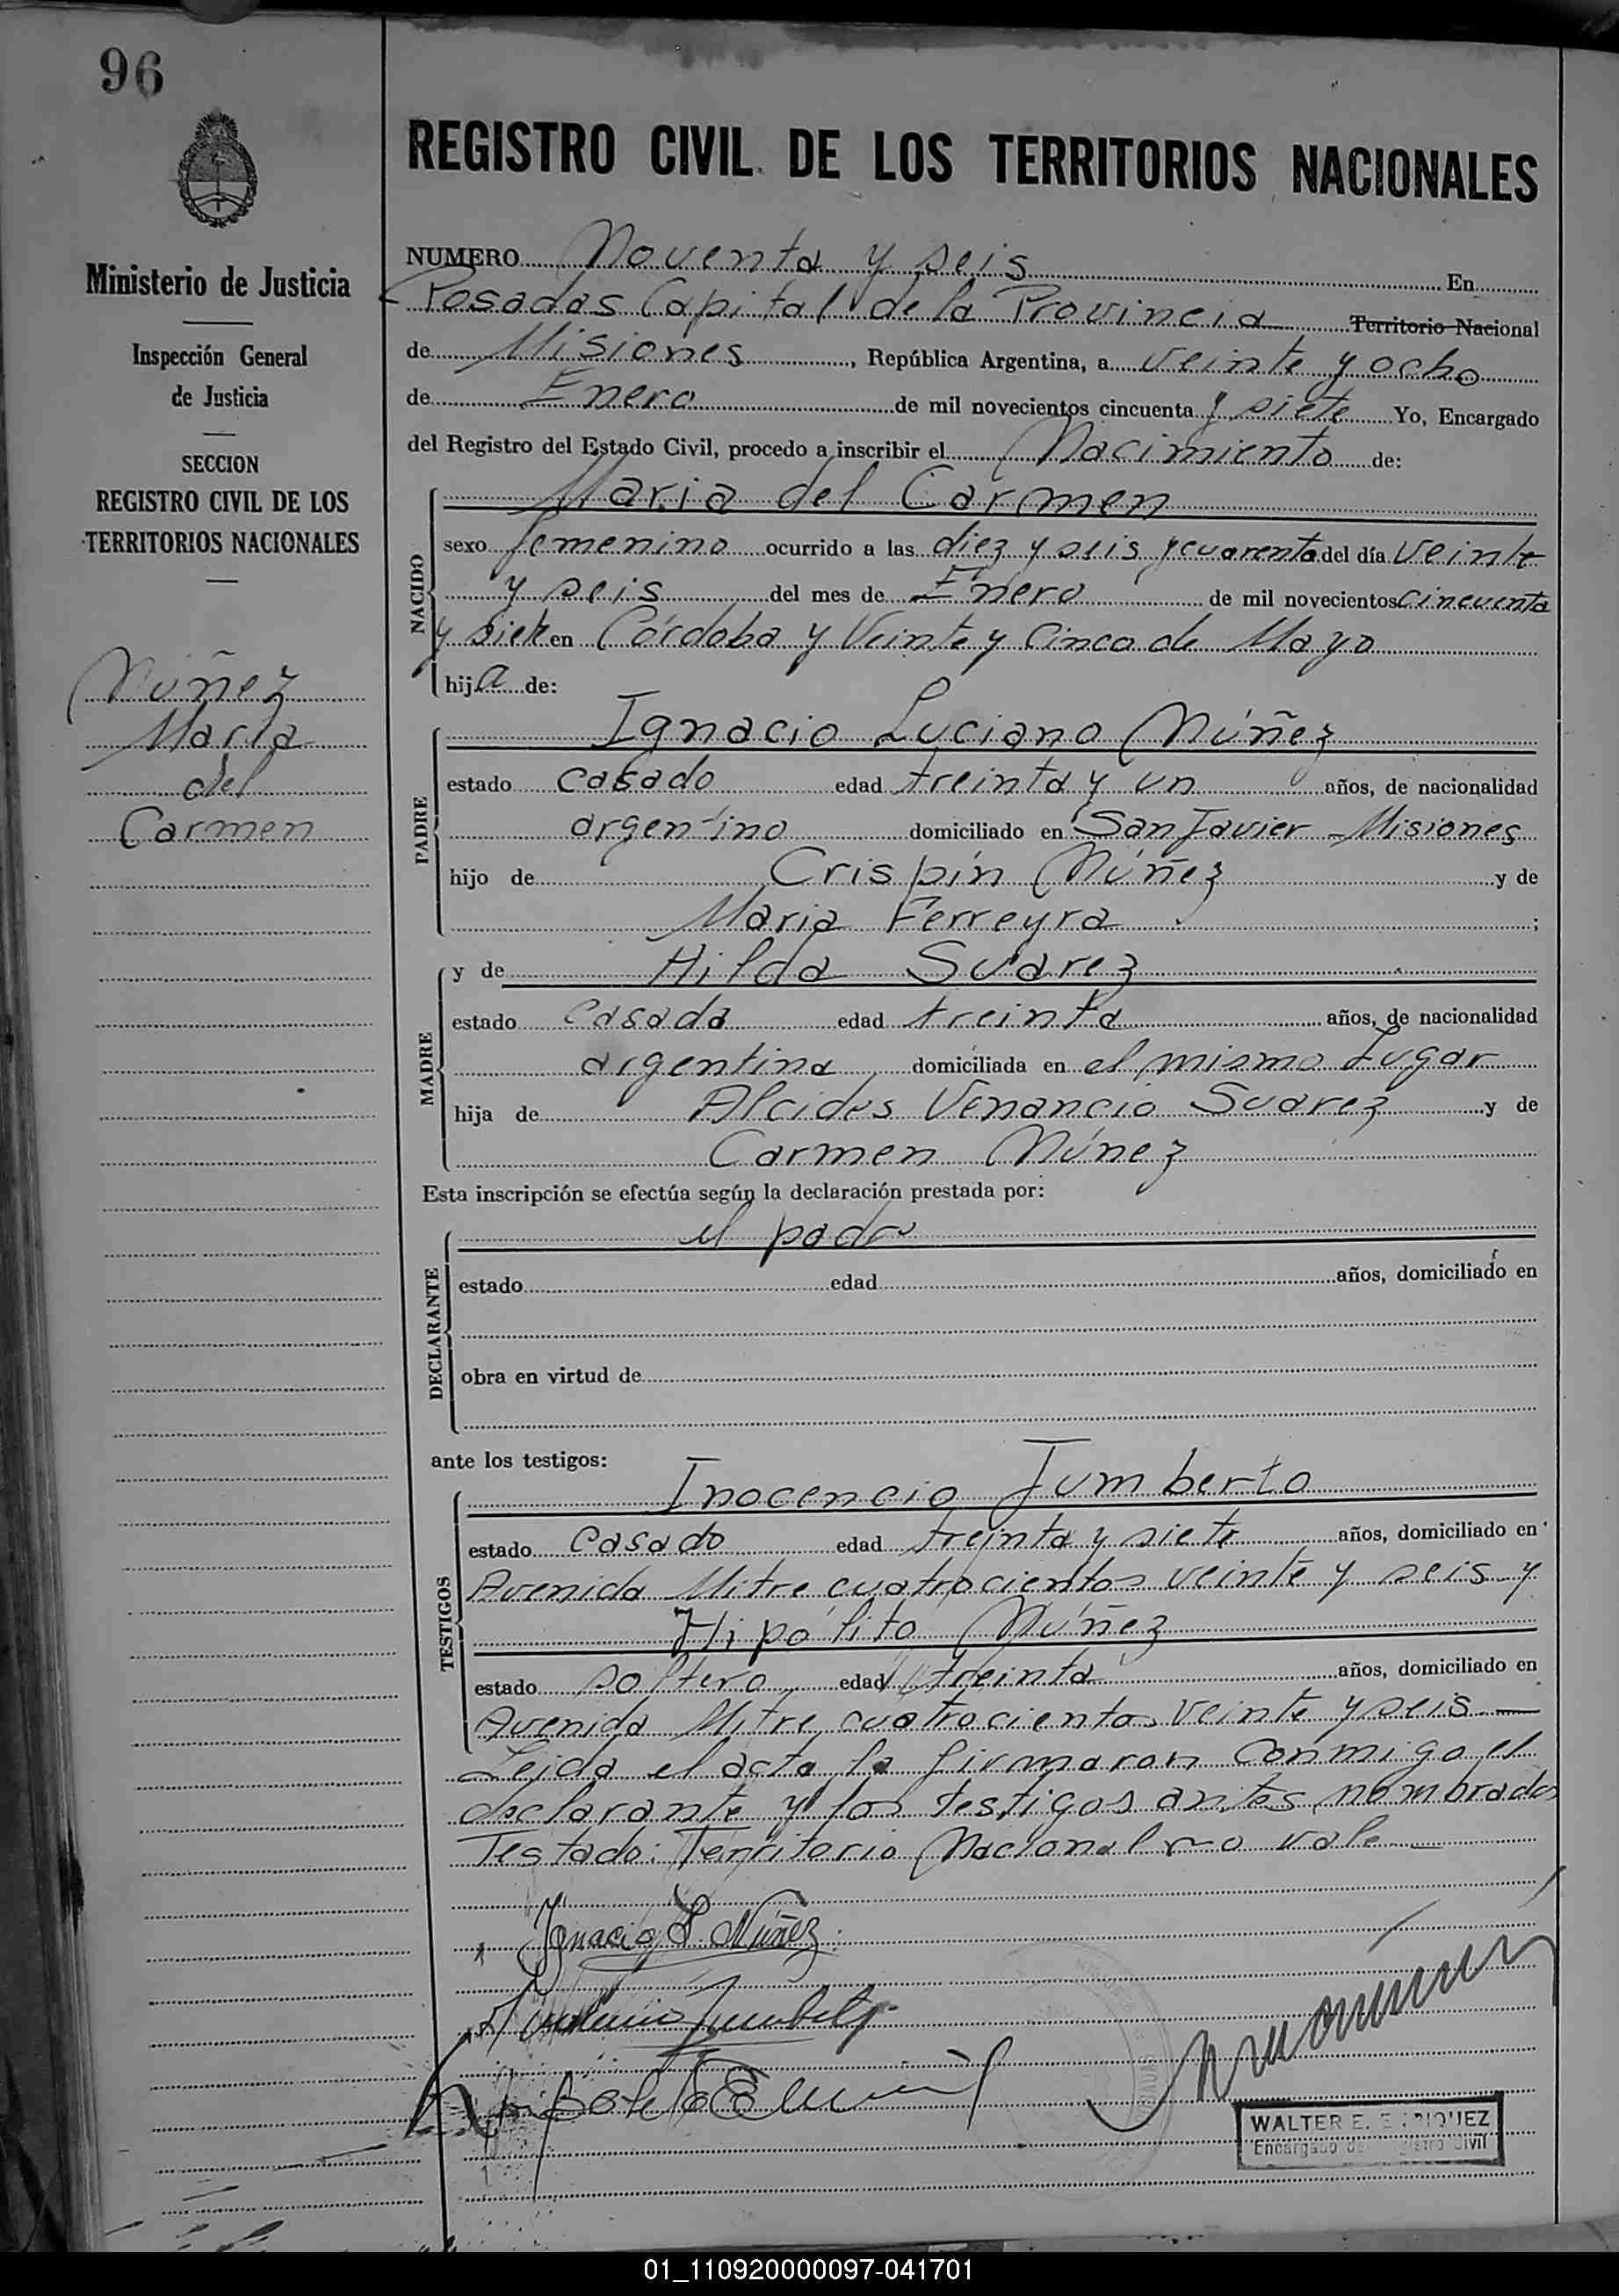 96
Ministerio de Justicia
Inspección General
de Justicia
SECCION
REGISTRO CIVIL DE LOS
TERRITORIOS NACIONALES
Núñez
María
del
Carmen
REGISTRO CIVIL DE LOS TERRITORIOS NACIONALES
NUMERO Noventa y seis En
Posadas Capital de la Provincia Territorio Nacional
de Misiones, República Argentina, a veinte y ocho
de Enero de mil novecientos cincuenta y siete Yo, Encargado
del Registro del Estado Civil, procedo a inscribir el Nacimiento de:
NACIDO
Maria del Carmen
sexo femenino ocurrido a las diez y seis y cuarenta del día veinte
y seis del mes de Enero de mil novecientos cincuenta
y siete en Córdoba y Veinte y Cinco de Mayo
hija de:
PADRE
Ignacio Luciano Núñez
estado casado edad treinta y un años, de nacionalidad
argentino domiciliado en San Javier - Misiones
hijo de Crispín Núñez y de
Maria Ferreyra ;
MADRE
y de Hilda Suarez
estado casada edad treinta años, de nacionalidad
argentina domiciliada en el mismo Lugar
hija de Alcides Venancio Suarez y de
Carmen Núnez
Esta inscripción se efectúa según la declaración prestada por:
DECLARANTE
el padre
estado edad años, domiciliado en
obra en virtud de
ante los testigos:
TESTIGOS
Inocencio Jumberto
estado casado edad treinta y siete años, domiciliado en
Avenida Mitre cuatrocientos veinte y seis y
Hipólito Núñez
estado soltero edad treinta años, domiciliado en
Avenida Mitre cuatrocientos veinte y seis —
Leida el acta la firmaron conmigo el
declarante y los testigos antes nombrados
Testado: Territorio Nacional no vale —
Ignacio L. Núñez
WALTER E. ENRIQUEZ
Encargado del Registro Civil
01_110920000097-041701